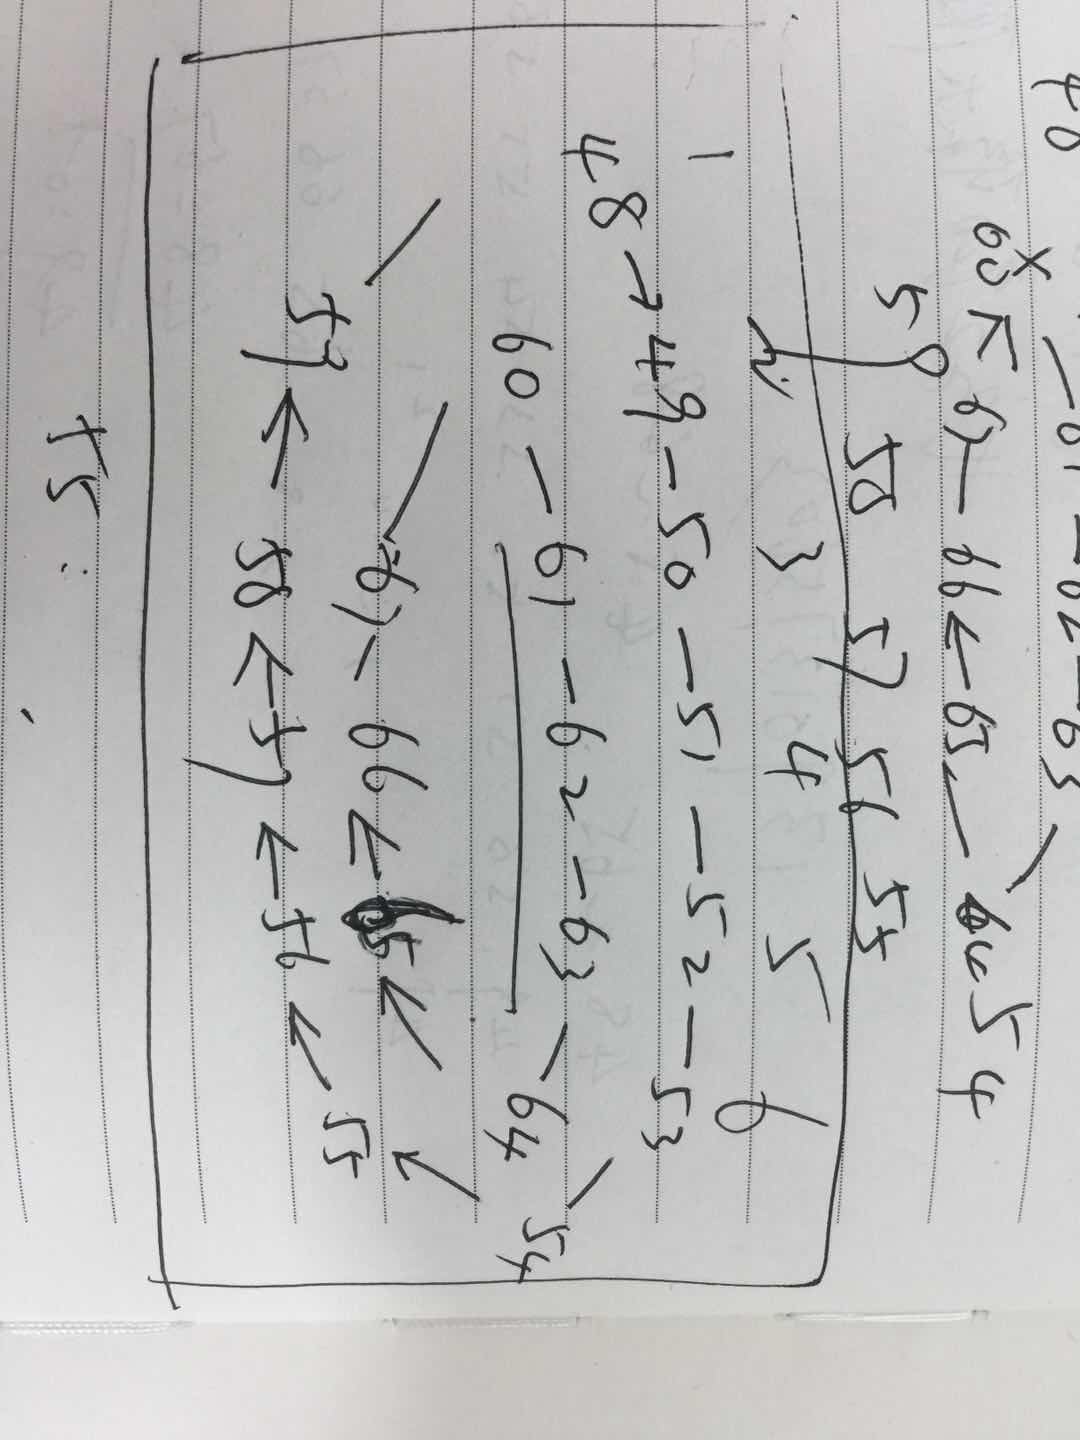 61 — 62 — 63
67 — 66 ← 65 — 64 54
59 58 57 56 55
1 2 3 4 5 6
48 → 49 — 50 — 51 — 52 — 53
60 — 61 — 62 — 63 — 64 54
67 — 66 ← 65 ←
59 ← 58 ← 57 ← 56 ← 55